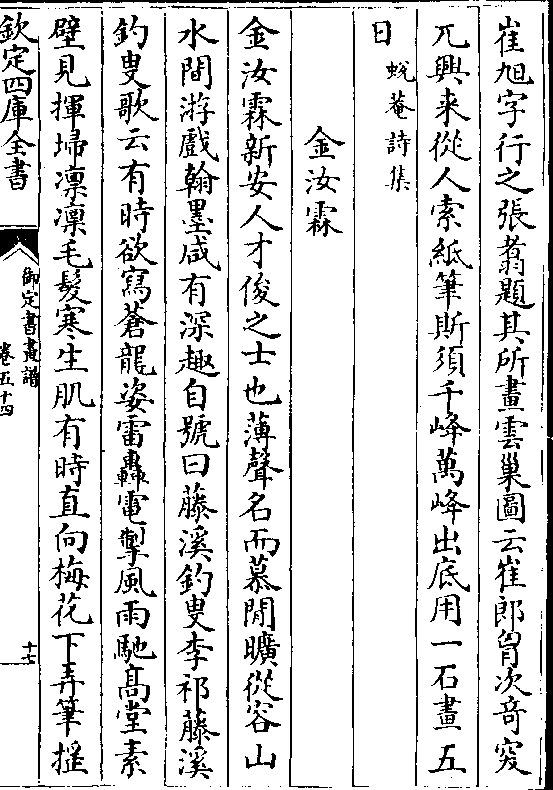 崔旭字行之張翥題其所畫雲巢圖云崔郎胷次竒突
兀興来從人索紙筆斯須千峰萬峰出底用一石畫五
日蛻菴詩集
金汝霖
金汝霖新安人才俊之士也薄聲名而慕閒曠從容山
水間游戲翰墨咸有深趣自號曰藤溪釣叟李祁藤溪
釣叟歌云有時欲寫蒼龍姿雷轟電掣風雨馳髙堂素
壁見揮埽凛凛毛髮寒生肌有時直向梅花下弄筆摇
欽定四庫全書
御定書畫譜
卷五十四
十七